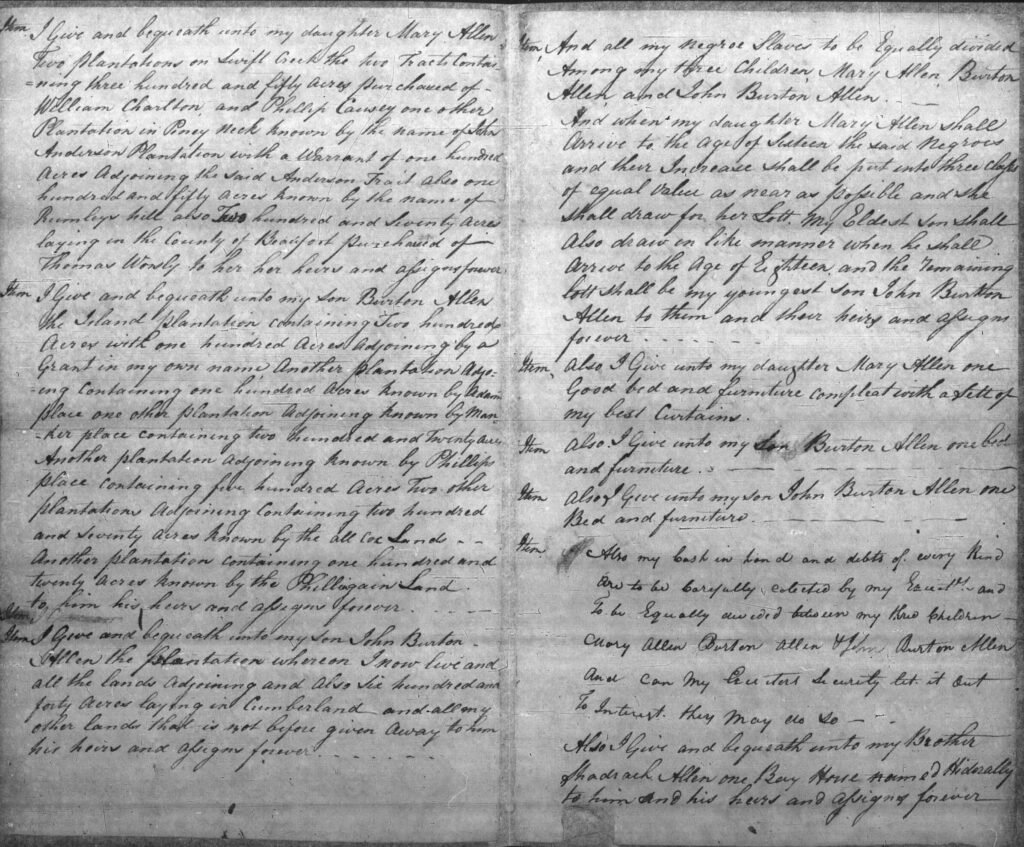 Item I Give and bequeath unto my daughter Mary Allen
Two plantations on Swift Creek the two Tracts Contai-
-ning three hundred and fifty acres purchased of
William Charlton and Phillip Causey one other
Plantation in Piney Neck known by the name of John
Anderson Plantation with a Warrant of one hundred
Acres Adjoining the said Anderson Trait also one
hundred and fifty acres known by the name of
Rumleys hill also Two hundred and Seventy Acres
laying in the County of Beaufort purchased of
Thomas Worsly to her her heirs and assigns forever
Item I Give and bequeath unto my son Burton Allen
the Island plantation containing Two hundred
Acres with one hundred Acres Adjoining by a
Grant in my own name, Another plantation Adjo-
-ing containing one hundred Acres known by Adam
place one other plantation Adjoining known by Man-
-ker place containing two hundred and Twenty acre
Another plantation Adjoining known by Phillips
place containing five hundred Acres Two other
plantations Adjoining Containing two hundred
and Seventy Acres known by the Land - -
Another plantation containing one hundred and
twenty acres known by the Land
to him his heirs and assigns forever. - - - -
Item
Item I Give and bequeath unto my son John Burton
Allen the plantation whereon I now live and
all the lands Adjoining and Also Six hundred and
forty Acres laying in Cumberland and all my
other lands that is not before given Away to him
his heirs and assigns forever - - - -
Item And all my negroe Slaves to be Equally divided
Among my three Children Mary Allen Burton
Allen and John Burton Allen. -
And when my daughter Mary Allen shall
Arrive to the Age of Sixteen the said Negroes
and their Increase shall be put into three Class
of equal Value as near as possible and she
shall draw for her Lott. My Eldest son shall
Also draw in like manner when he shall
Arrive to the Age of Eighteen, and the remaining
Lott shall be my youngest son John Burtton
Allen to them and their heirs and assigns
forever - - - -
Item, Also I Give unto my daughter Mary Allen one
Good bed and furniture compleat with a Sett of
my best Curtains
Item Also I Give unto my Son Burton Allen one bed
and furniture. - - - -
Item Also I Give unto my son John Burton Allen one
Bed and furniture. - - - -
Item Also my Cash in hand and debts of every Kind
are to be Carefully colected by my and
To be Equally devided between my three Children -
Mary Allen Burton Allen & John Burton Allen
And can My Security let it out
To Interest they May do so - -
Also I Give and bequeath unto my Brother
Shadrach Allen one Bay Horse named
to him and his heirs and assigns forever